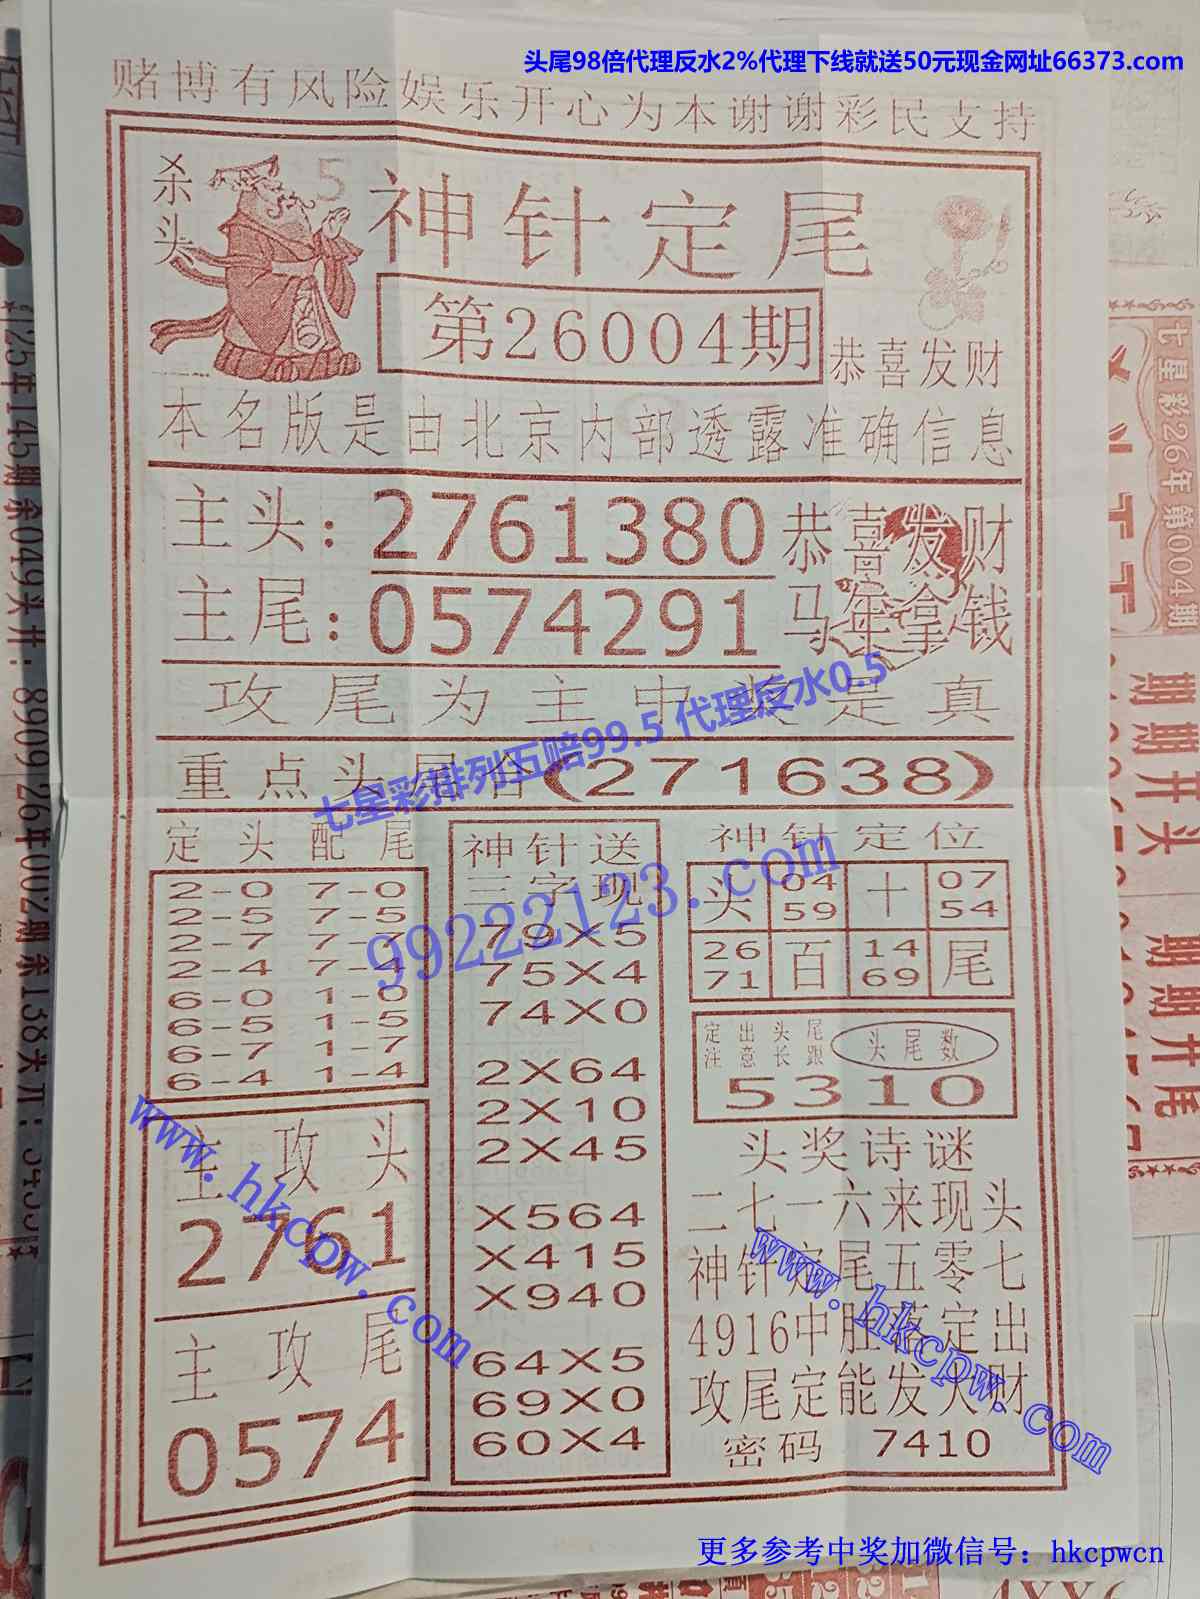 头尾98倍代理反水2%代理下线就送50元现金网址66373.com
赌博有风险娱乐开心为本谢谢彩民支持
杀头
5
神针定尾
第26004期
恭喜发财
本名版是由北京内部透露准确信息
主头:2761380
恭喜发财
主尾:0574291
马年拿钱
攻尾为主中奖是真
七星彩排列五赔99.5 代理反水0.5
重点头尾合(271638)
定头配尾
2-0 7-0
2-5 7-5
2-7 7-7
2-4 7-4
6-0 1-0
6-5 1-5
6-7 1-7
6-4 1-4
主攻头
2761
主攻尾
0574
神针送
三字现
79X5
75X4
74X0
2X64
2X10
2X45
X564
X415
X940
64X5
69X0
60X4
99222123.com
神针定位
头 04 59 十 07 54
26 71 百 14 69 尾
定出头尾
注意长跟
头尾数
5310
头奖诗谜
二七一六来现头
神针定尾五零七
4916中肚落定出
攻尾定能发大财
密码 7410
www.hkcpw.com
www.hkcpw.com
更多参考中奖加微信号：hkcpwcn
七星彩26年第004期
期期井头
期期井尾